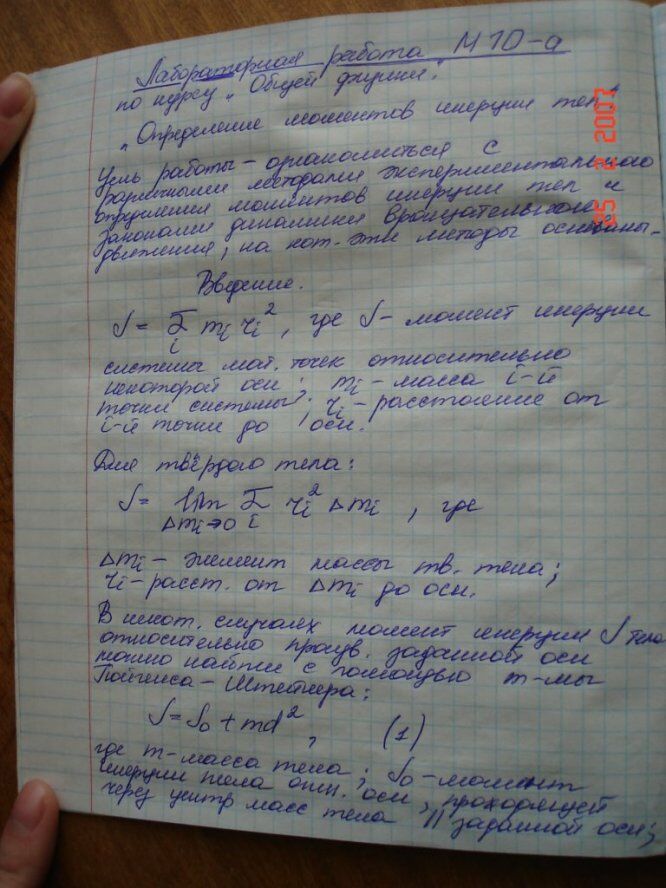 Лабораторная работа М 10-а
по курсу „Общей физики"
„Определение моментов инерции тел"
Цель работы – ознакомиться с
различными методами экспериментального
определения моментов инерции тел и
законами динамики вращательного
движения, на кот. эти методы основаны.
Введение.
J = Σ_i m_i r_i², где J – момент инерции
системы мат. точек относительно
некоторой оси; m_i – масса i-й
точки системы; r_i – расстояние от
i-й точки до оси.
Для твёрдого тела:
J = lim_{Δm_i→0} Σ_i r_i² Δm_i, где
Δm_i – элемент массы тв. тела;
r_i – расст. от Δm_i до оси.
В некот. случаях момент инерции J тела
относительно произв. заданной оси
можно найти с помощью т-мы
Гюйгенса – Штейнера:
J = J₀ + md², (1)
где m – масса тела; J₀ – момент
инерции тела отн. оси, проходящей
через центр масс тела || заданной оси;
25 2 2007